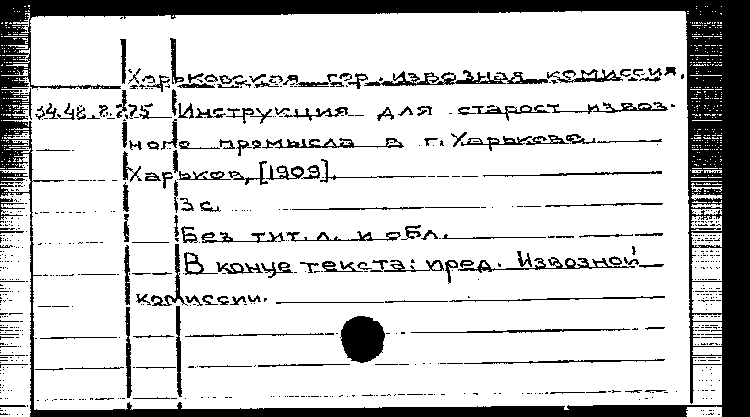 Харьковская гор. извозная комиссия.
34.48.8.225 Инструкция для старост извоз-
ного промысла в г. Харькове.
Харьков, [1909].
3 с.
Без тит. л. и обл.
В конце текста: пред. Извозной
комиссии.